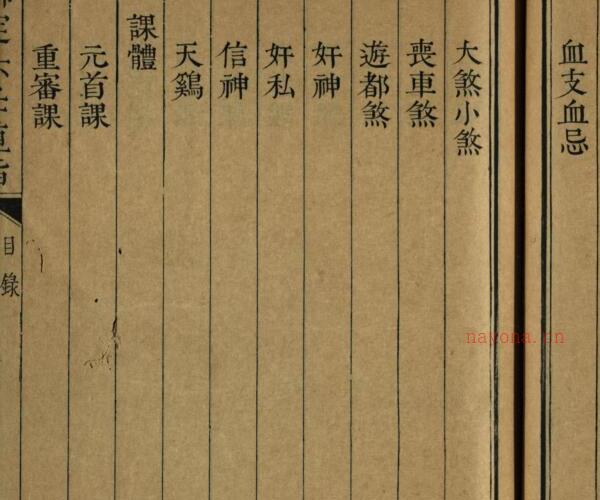 血支血忌
大煞小煞
喪車煞
遊都煞
奸神
奸私
信神
天鷄
課體
元首課
重審課
目錄
nayona.cn